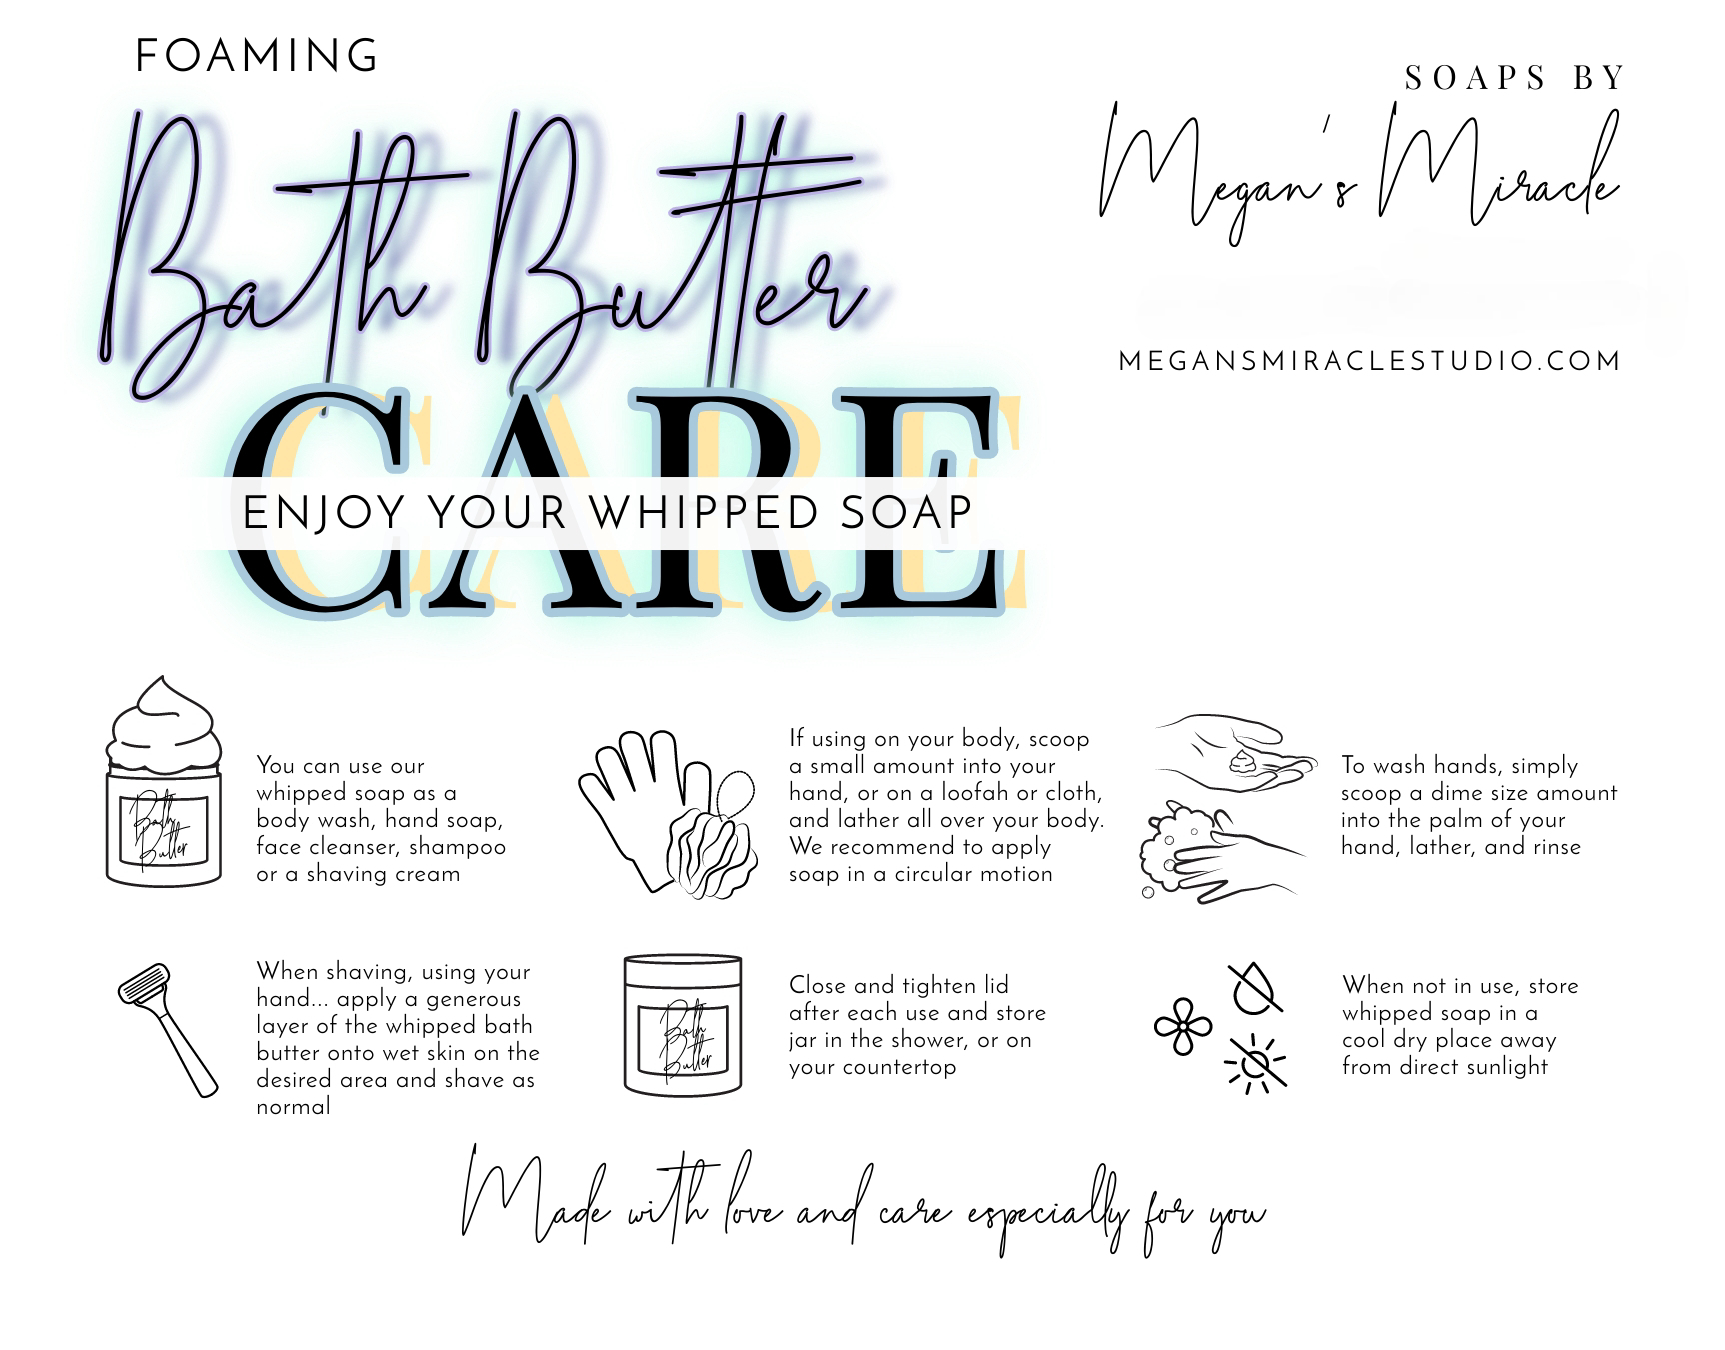 FOAMING
Bath Butter
CARE
ENJOY YOUR WHIPPED SOAP
SOAPS BY
Megan's Miracle
MEGANSMIRACLESTUDIO.COM
Bath
Butter
You can use our
whipped soap as a
body wash, hand soap,
face cleanser, shampoo
or a shaving cream
If using on your body, scoop
a small amount into your
hand, or on a loofah or cloth,
and lather all over your body.
We recommend to apply
soap in a circular motion
To wash hands, simply
scoop a dime size amount
into the palm of your
hand, lather, and rinse
When shaving, using your
hand... apply a generous
layer of the whipped bath
butter onto wet skin on the
desired area and shave as
normal
Bath
Butter
Close and tighten lid
after each use and store
jar in the shower, or on
your countertop
When not in use, store
whipped soap in a
cool dry place away
from direct sunlight
Made with love and care especially for you